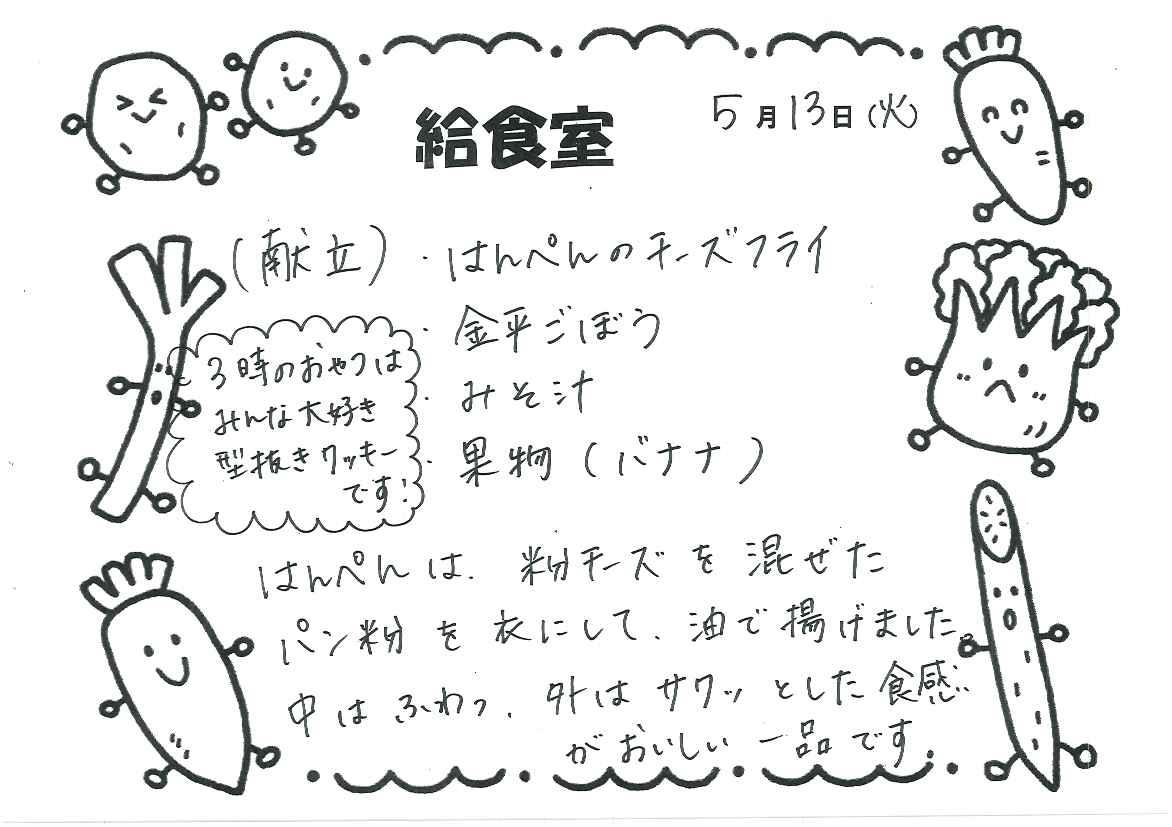 給食室
5月13日(火)
(献立)・はんぺんのチーズフライ
・金平ごぼう
・みそ汁
・果物(バナナ)
3時のおやつは
みんな大好き
型抜きクッキー
です!
はんぺんは、粉チーズを混ぜた
パン粉を衣にして、油で揚げました。
中はふわっ、外はサクッとした食感
がおいしい一品です。